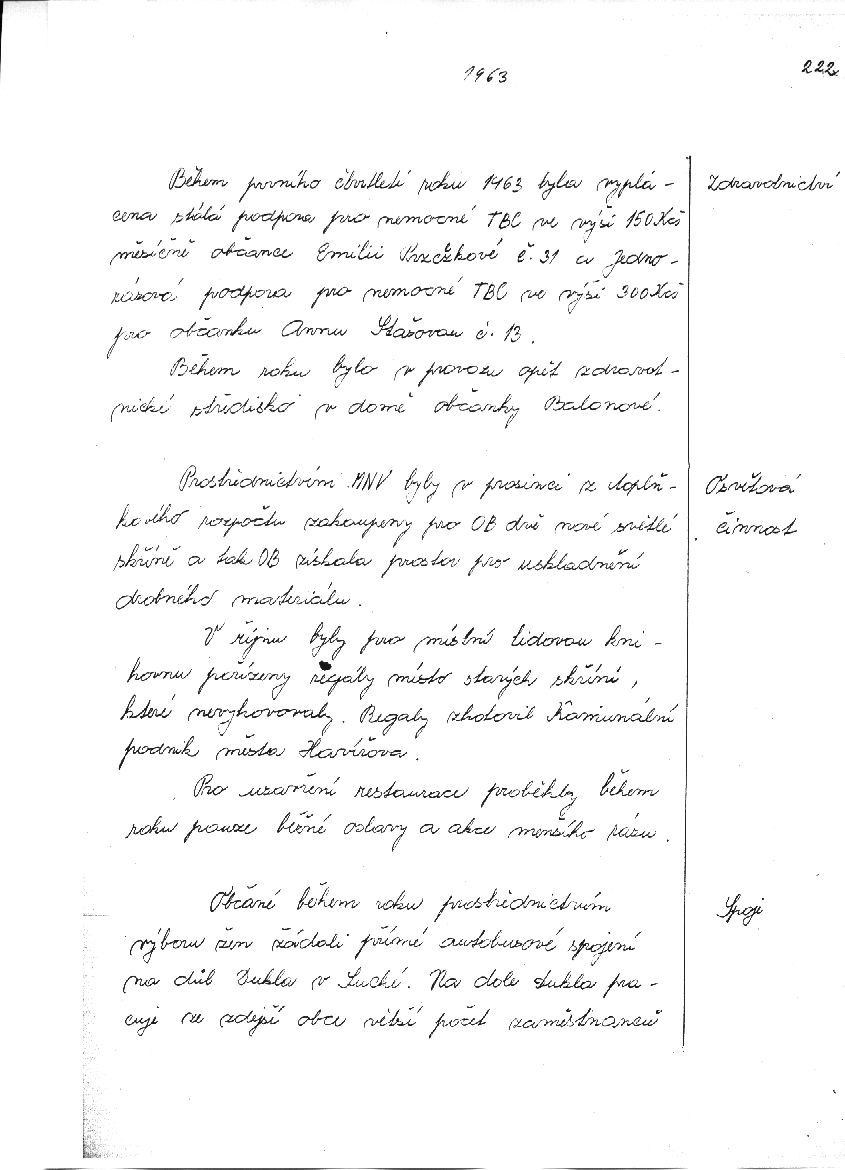 1963
222
Během prvního čtvrtletí roku 1963 byla vyplá-
cena stálá podpora pro nemocné TBC ve výši 150 Kčs
měsíčně občance Emilii Krzežkové č. 31 a jedno-
rázová podpora pro nemocné TBC ve výši 300 Kčs
pro občanku Annu Stašovou č. 13.
Během roku bylo v provozu opět zdravot-
nické středisko v domě občanky Balonové.
Zdravotnictví
Prostřednictvím MNV byly v prosinci z doplň-
kového rozpočtu zakoupeny pro OB dvě nové světlé
skříně a tak OB získala prostor pro uskladnění
drobného materiálu.
V říjnu byly pro místní lidovou kni-
hovnu pořízeny regály místo starých skříní,
které nevyhovovaly. Regaly zhotovil Komunální
podnik města Havířova.
Pro uzavření restaurace proběhly během
roku pouze běžné oslavy a akce menšího rázu.
Osvětová
činnost
Občané během roku prostřednictvím
výboru žen žádali přímé autobusové spojení
na důl Dukla v Suché. Na dole Dukla pra-
cuje ze zdejší obce větší počet zaměstnanců
Spoje